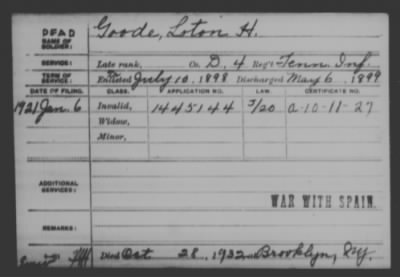 DEAD Goode, Loton H.
NAME OF SOLDIER:
SERVICE: Late rank, Co. D, 4 Reg't Tenn. Inf.
TERM OF SERVICE: Enlisted July 10, 1898 Discharged May 6, 1899
DATE OF FILING. CLASS. APPLICATION NO. LAW. CERTIFICATE NO.
1921 Jan. 6 Invalid, 1445144 3/20 a-10-11-27
Widow,
Minor,
ADDITIONAL SERVICES:
WAR WITH SPAIN
REMARKS:
Died Oct 28, 1932 at Brooklyn, NY.